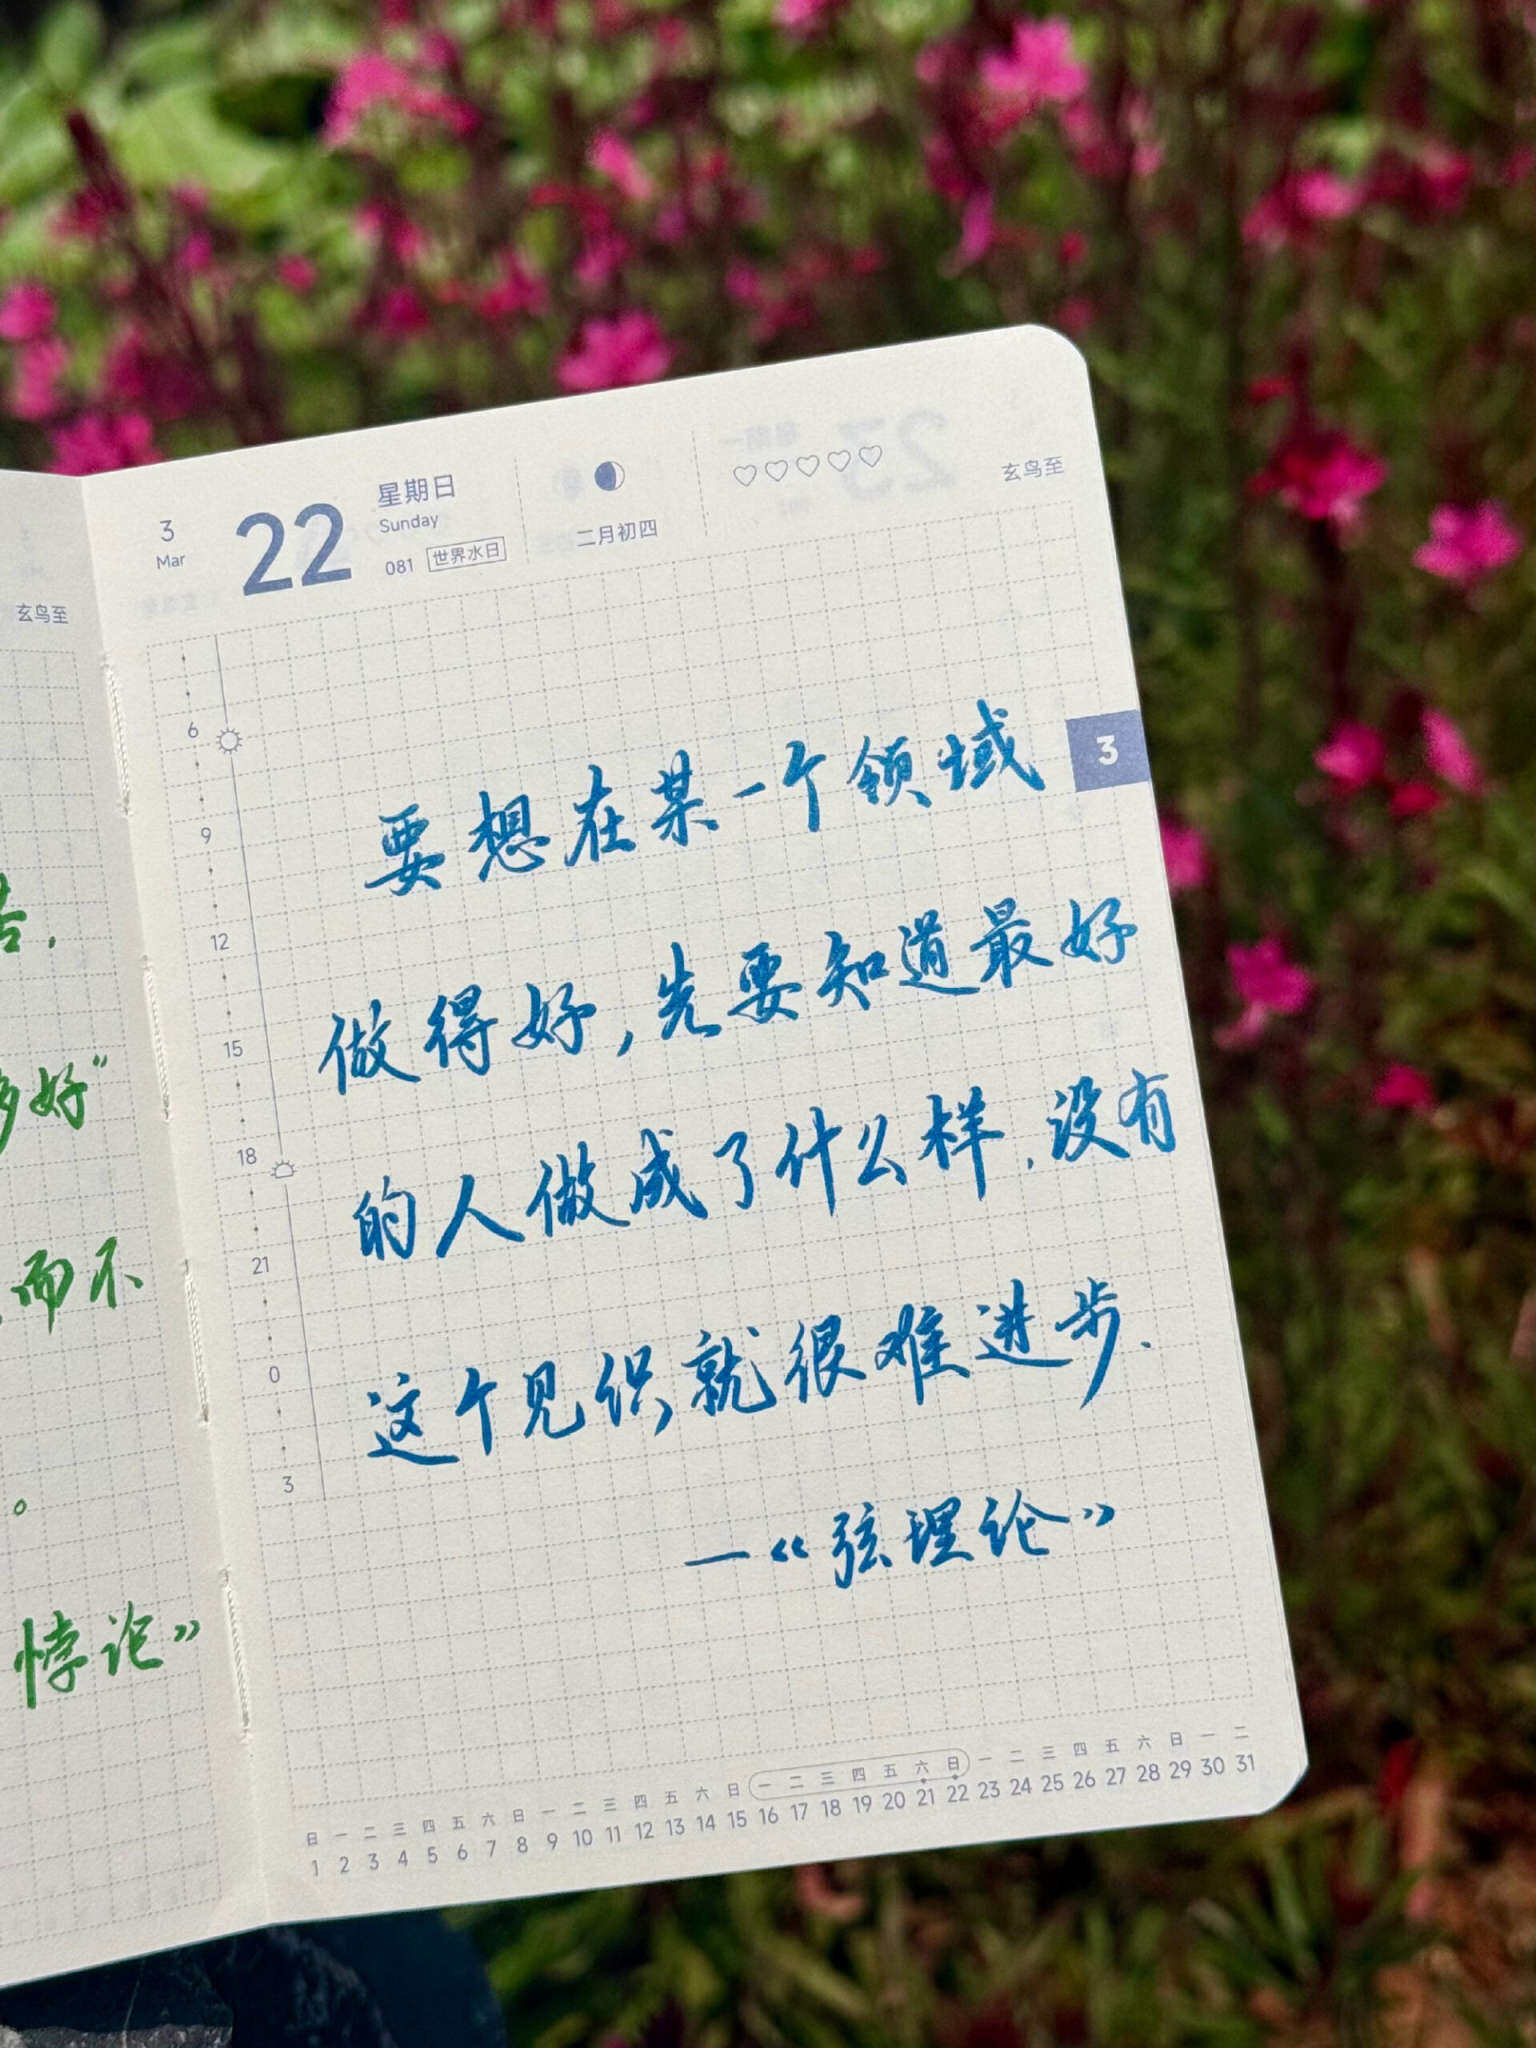 玄鸟至
苦，
多好”
而不
。
悖论》
3
Mar
22
星期日
Sunday
081 世界水日
二月初四
玄鸟至
3
6
9
12
15
18
21
0
3
要想在某一个领域
做得好,先要知道最好
的人做成了什么样.没有
这个见识就很难进步.
—《弦理论》
日 一 二 三 四 五 六 日 一 二 三 四 五 六 日 一 二 三 四 五 六 日 一 二 三 四 五 六 日 一 二
1 2 3 4 5 6 7 8 9 10 11 12 13 14 15 16 17 18 19 20 21 22 23 24 25 26 27 28 29 30 31